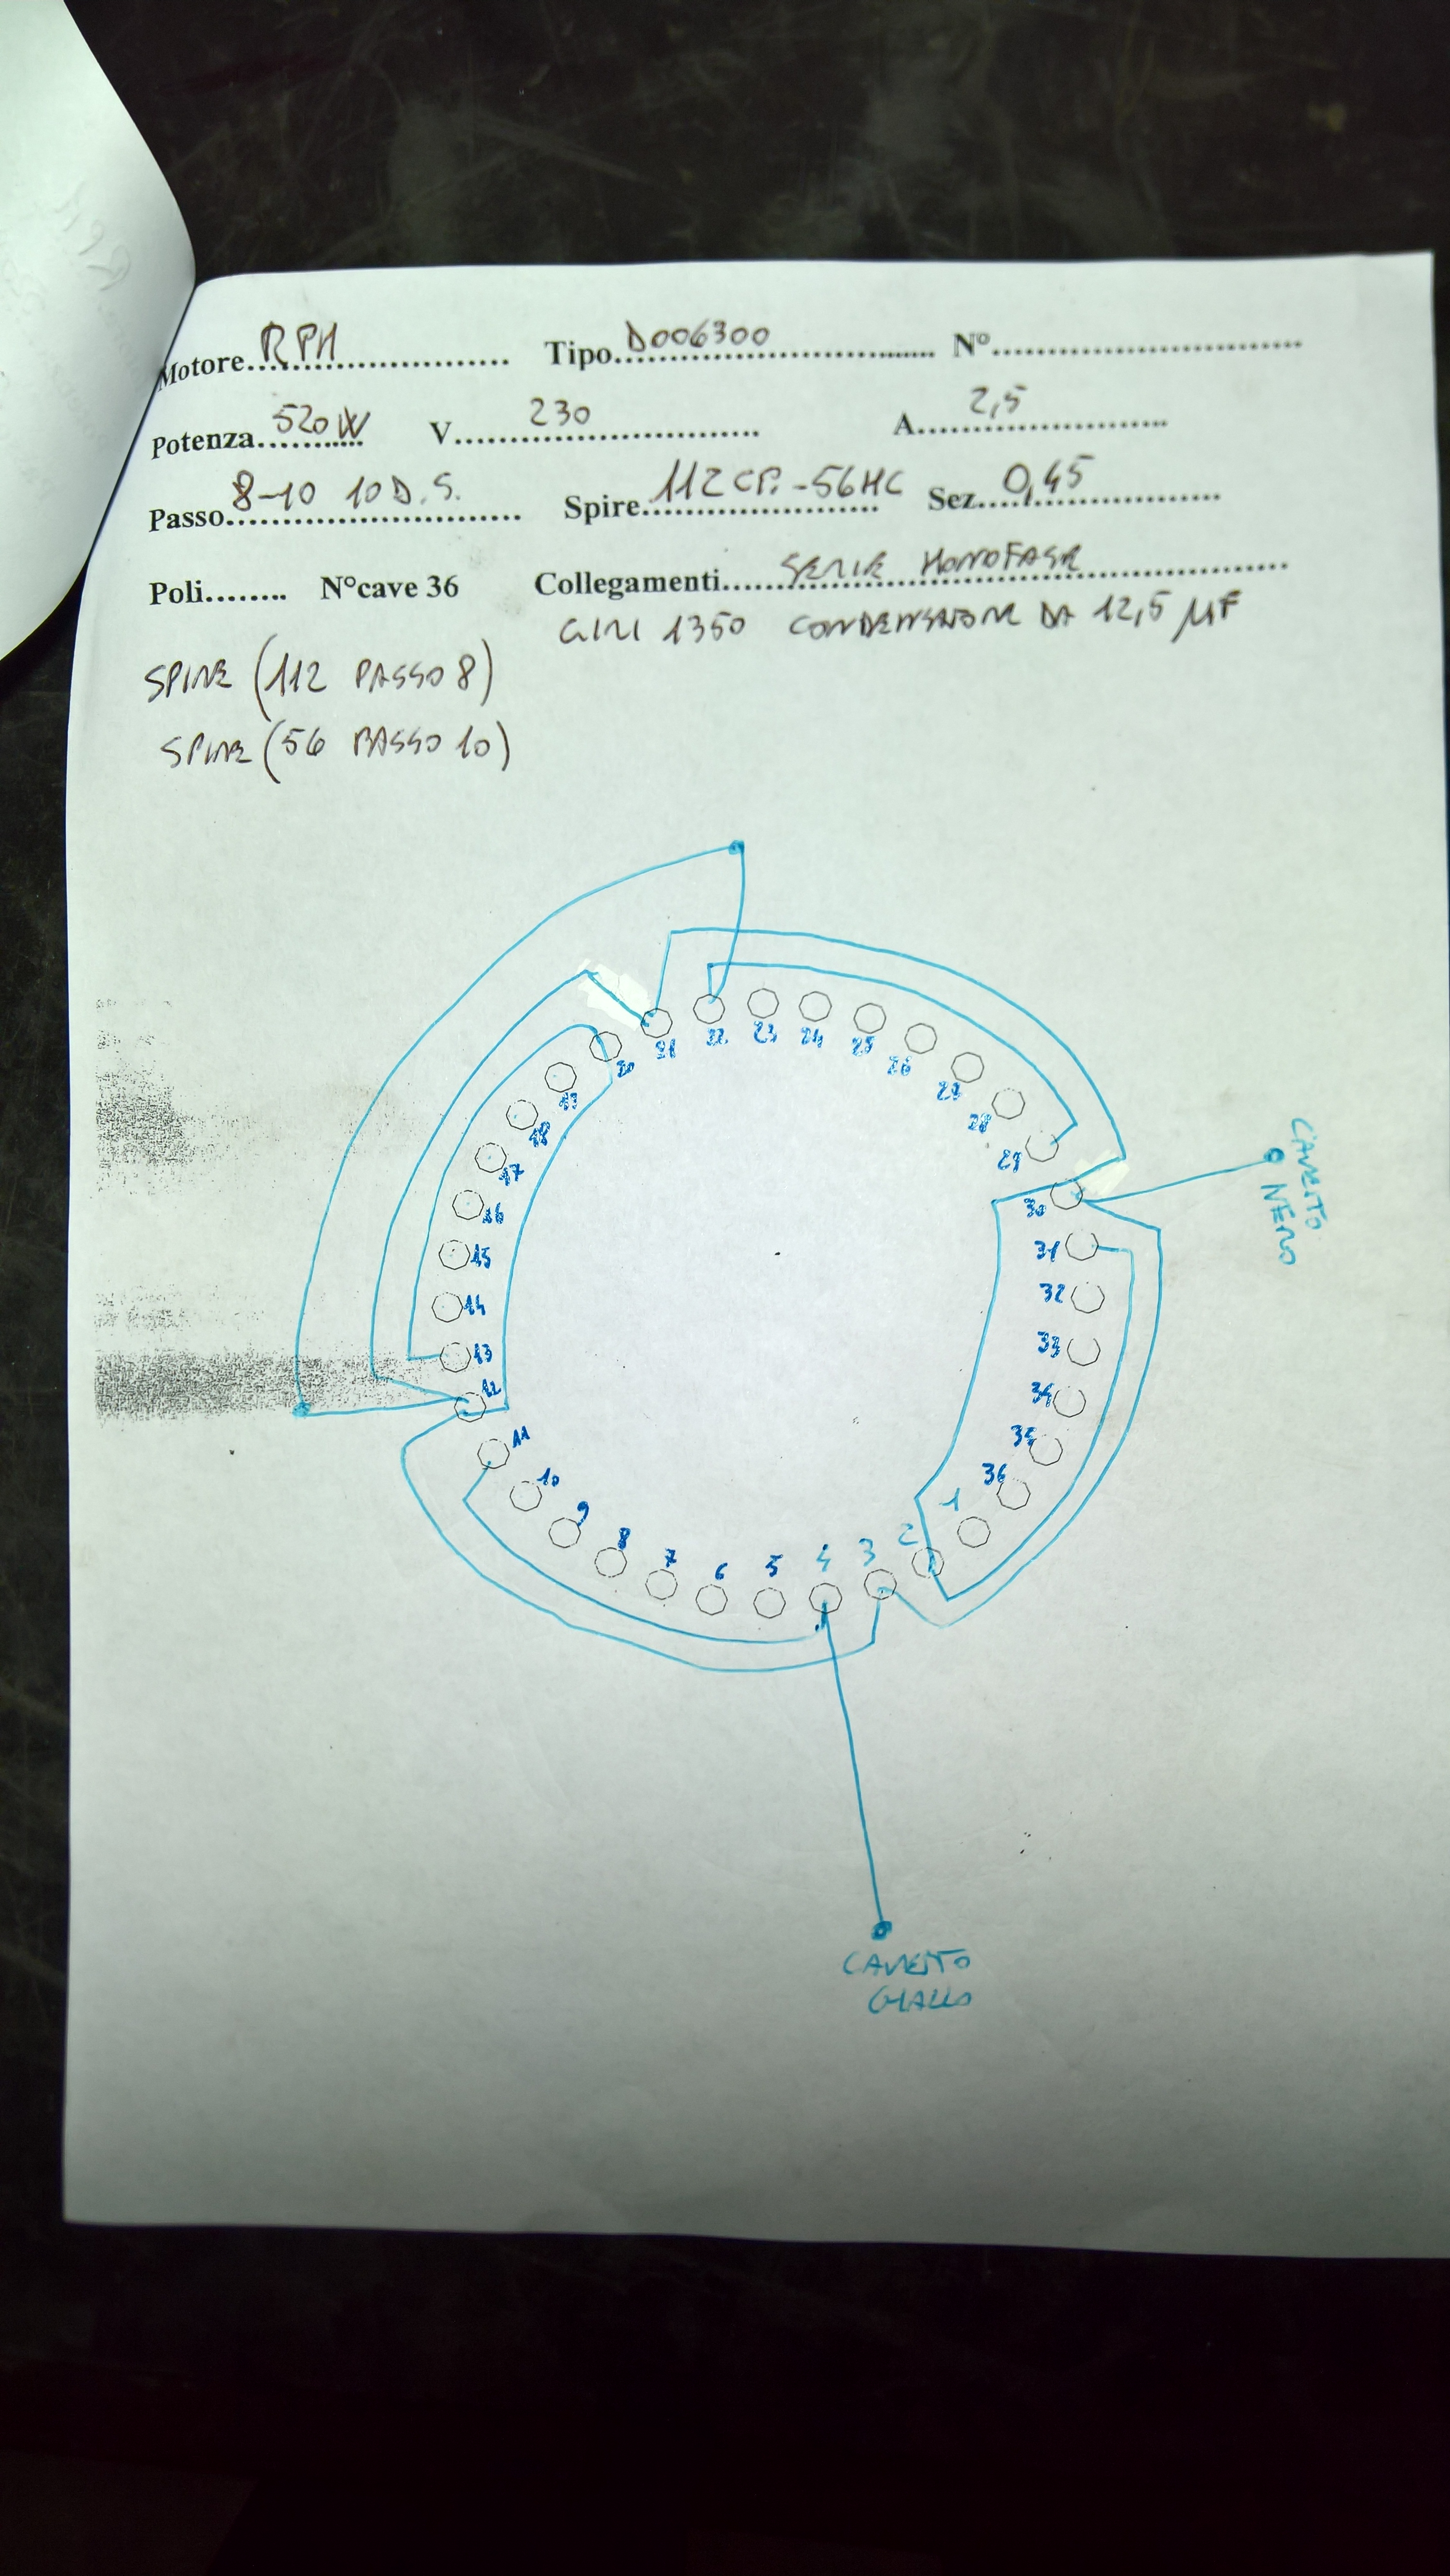 Motore RPM Tipo D006300 N°
Potenza 520W V 230 A 2,5
Passo 8-10 10D.S. Spire 112 CP.-56HC Sez. 0,45
Poli........ N°cave 36 Collegamenti SERIE MONOFASE
GIRI 1350 CONDENSATORE DA 12,5 µF
SPIRE (112 PASSO 8)
SPIRE (56 PASSO 10)
21 22 23 24 25
20 26
19 27
18 28
17 29
CAVETTO NERO
16 30
15 31
14 32
13 33
12 34
11 35
10 36
9 1
8 7 6 5 4 3 2
CAVETTO
GIALLO